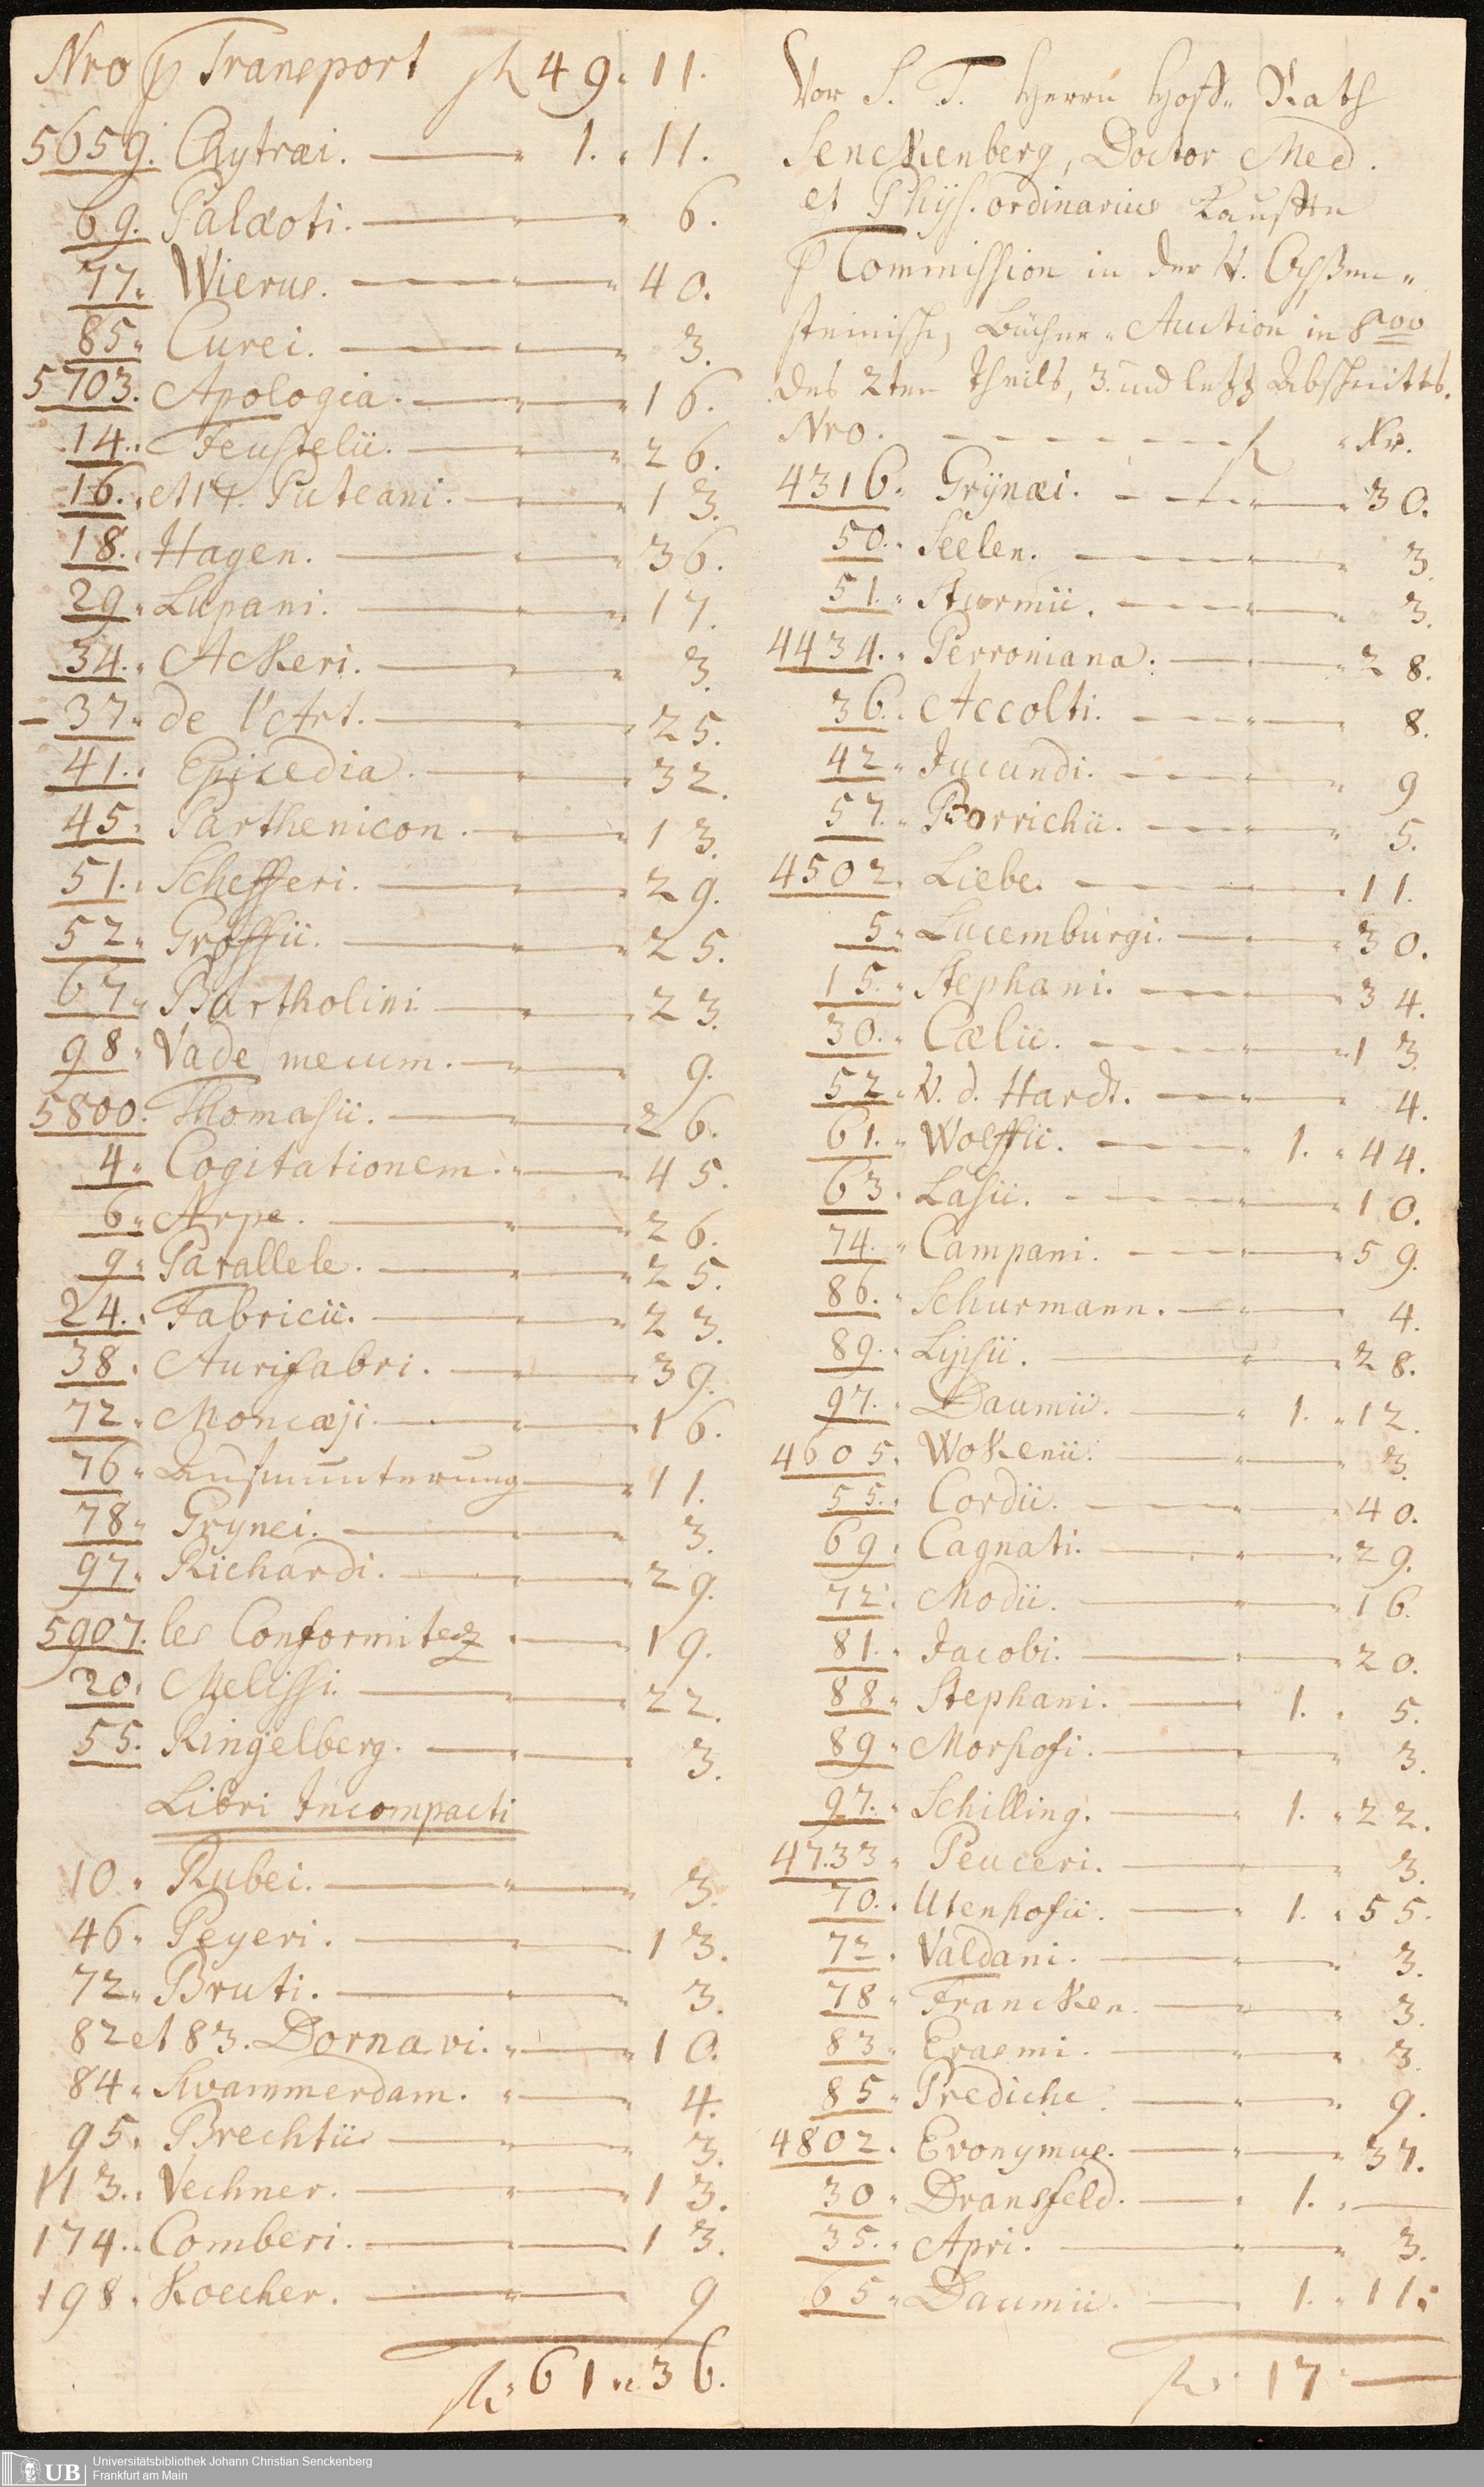 Nro p Transport fl 49. 11.
5659. Chytræi. — 1. 11.
69. Palæoti. — 6.
77. Wierus. — 40.
85. Curei. — 3.
5703. Apologia. — 16.
14. Feustelii. — 26.
16. et 17. Puteani. — 13.
18. Hagen. — 36.
29. Lupani. — 17.
34. Ackeri. — 3.
– 37. de l'Art. — 25.
41. Epicedia. — 32.
45. Parthenicon. — 13.
51. Schefferi. — 29.
52. Groffii. — 25.
67. Bartholini — 23.
98. Vade mecum. — 9.
5800. Thomasii. — 26.
4. Cogitationem. — 45.
6. Arpe. — 26.
9. Parallele. — 25.
24. Fabricii. — 23.
38. Aurifabri. — 39.
72. Moncæji. — 16.
76. Aufmunterung — 11.
78. Grynei. — 3.
97. Richardi. — 29.
5907. les Conformitez. — 19.
20. Melissi. — 22.
55. Ringelberg. — 3.
Libri Incompacti
10. Rubei. — 3.
46. Peyeri. — 13.
72. Bruti. — 3.
82 et 83. Dornavi. — 10.
84. Swammerdam. — 4.
95. Brechtii — 3.
113. Vechner. — 13.
174. Comberi. — 13.
198. Koecher. — 9
fl. 61. 36.
Vor S. T. Herrn Hoff-Rath
Senckenberg, Doctor Med.
et Phijs. ordinarius Kauffte
p Commission in der V. Ochßen-
steinisch, Bücher-Auction in 8vo
des 2ten Theils, 3. und letz Abschnitts.
Nro. — fl Kr.
4316. Grÿnæi. — 30.
50. Seelen. — 3.
51. Sturmii. — 3.
4434. Perroniana. — 28.
36. Accolti. — 8.
42. Jucundi. — 9
57. Borrichii. — 5.
4502. Liebe. — 11.
5. Lucemburgi. — 30.
15. Stephani. — 34.
30. Cælii. — 13.
52. V. d. Hardt. — 4.
61. Wolffii. — 1. 44.
63. Lasii. — 10.
74. Campani. — 59.
86. Schurmann. — 4.
89. Lipsii. — 28.
97. Daumii. — 1. 12.
4605. Wokenii. — 3.
55. Cordii. — 40.
69. Cagnati. — 29.
72. Modii. — 16.
81. Jacobi. — 20.
88. Stephani. — 1. 5.
89. Morhofi. — 3.
97. Schilling. — 1. 22.
4733. Peuceri. — 3.
70. Utenhofii. — 1. 55.
72. Valdani. — 3.
78. Francken. — 3.
83. Erasmi. — 3.
85. Prediche. — 9.
4802. Evonymus. — 37.
30. Dransfeld. — 1. —
35. Apri. — 3.
65. Daumii. — 1. 11.
fl. 17 —
UB Universitätsbibliothek Johann Christian Senckenberg
Frankfurt am Main